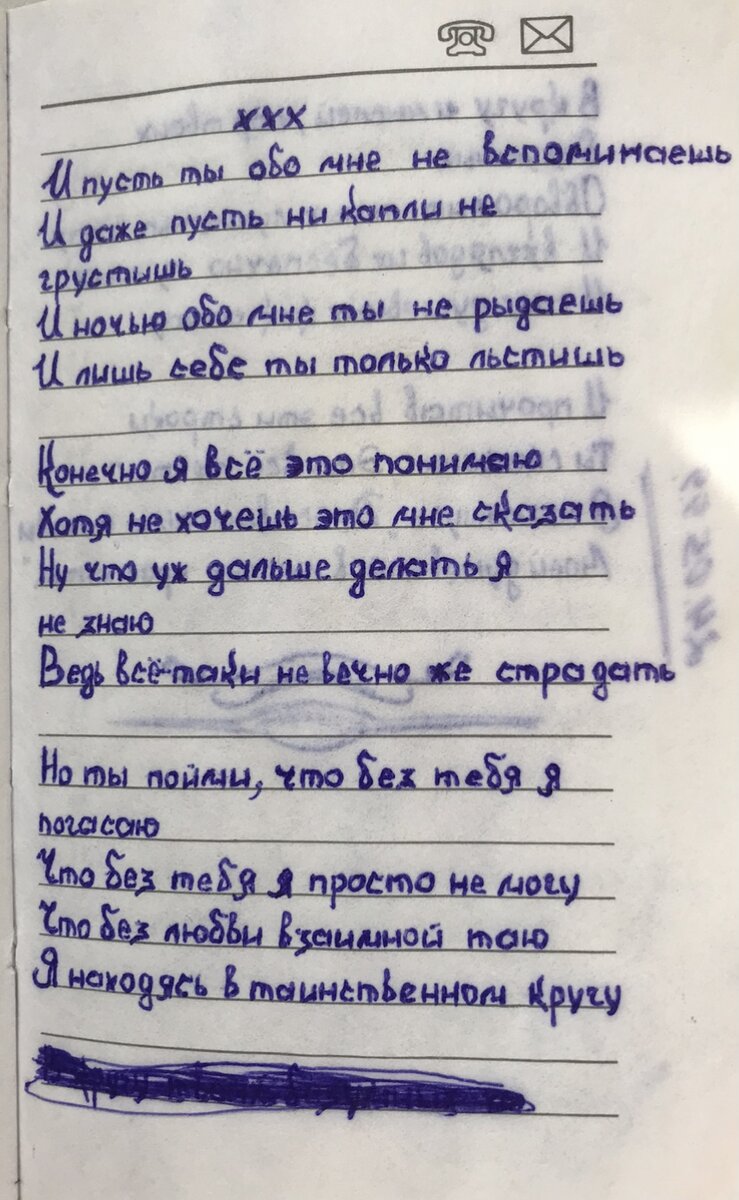 ххх
И пусть ты обо мне не вспоминаешь
И даже пусть ни капли не
грустишь
И ночью обо мне ты не рыдаешь
И лишь себе ты только льстишь
Конечно я всё это понимаю
Хотя не хочешь это мне сказать
Ну что уж дальше делать я
не знаю
Ведь всё-таки не вечно же страдать
Но ты пойми, что без тебя я
погасаю
Что без тебя я просто не могу
Что без любви взаимной таю
Я находясь в таинственном кругу